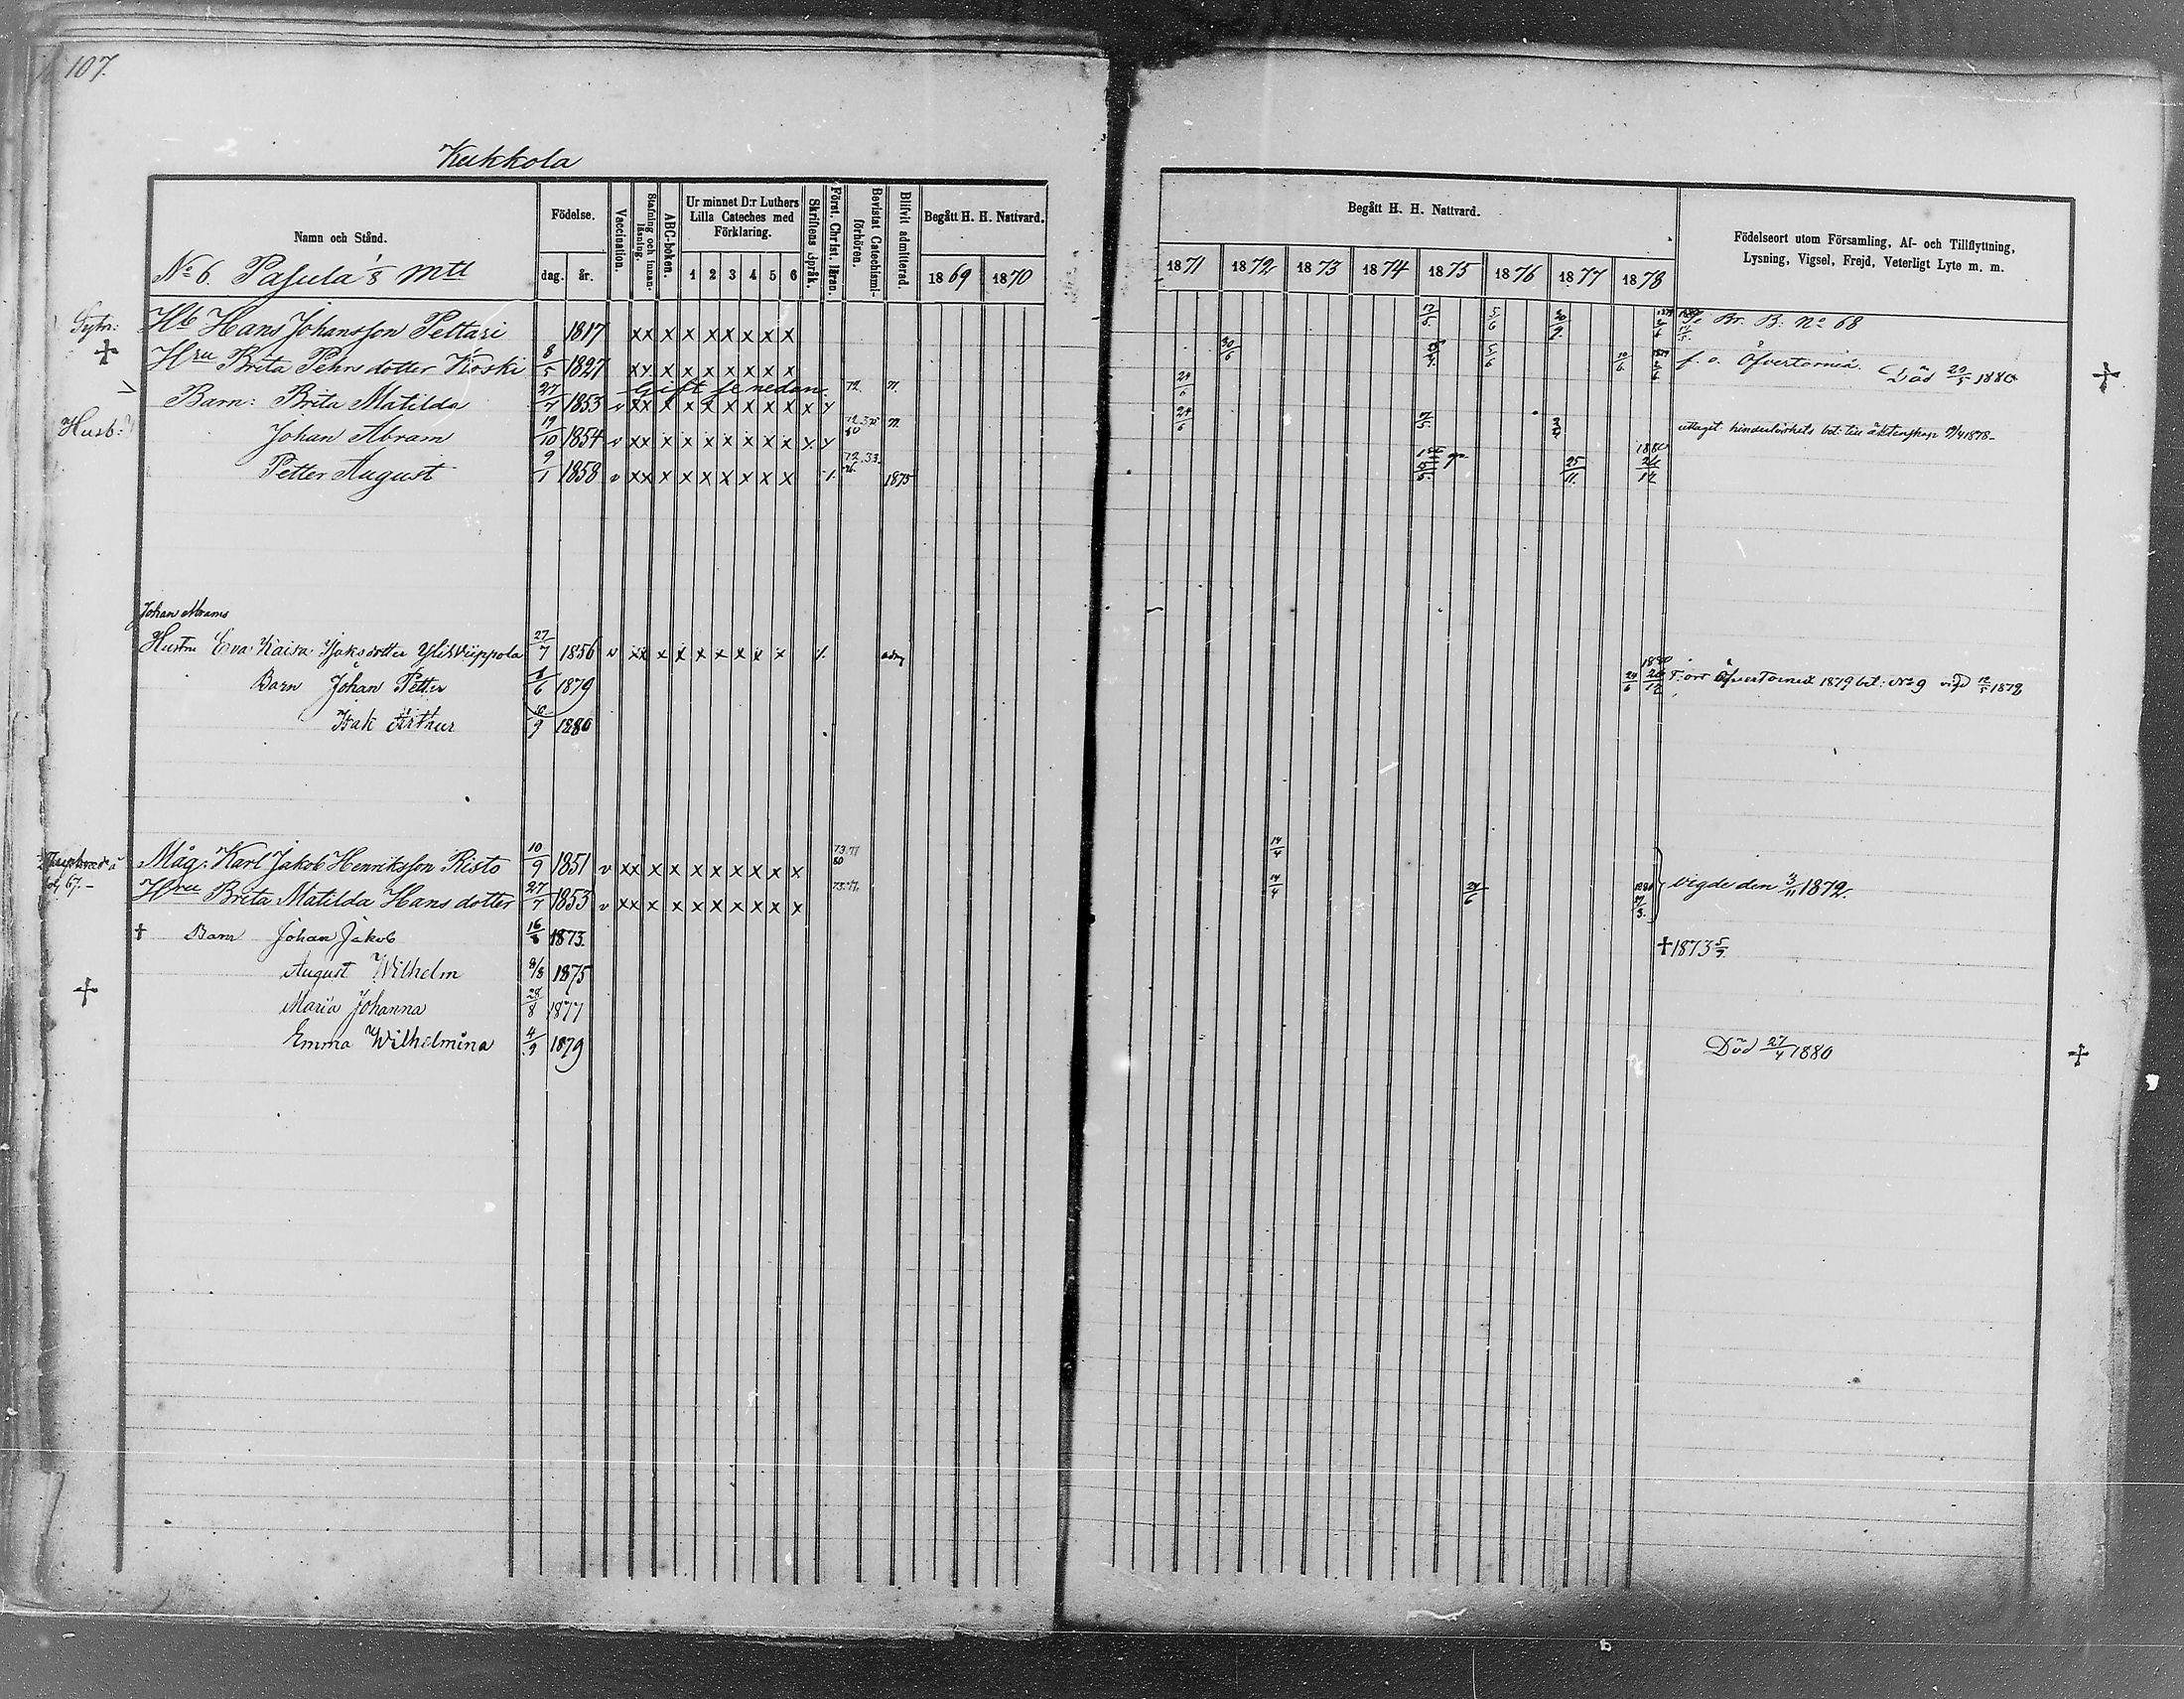 107.
Kukkola
Namn och Stånd.
Födelse.
dag. år.
Vaccination.
Stafning och innanläsning.
ABC-boken.
Ur minnet D:r Luthers Lilla Cateches med Förklaring.
1 2 3 4 5 6
Skriftens Språk.
Först. Christ. läran.
Bevistat Catechismi-förhören.
Blifvit admitterad.
Begått H. H. Nattvard.
1869 1870
Begått H. H. Nattvard.
1871 1872 1873 1874 1875 1876 1877 1878
Födelseort utom Församling, Af- och Tillflyttning,
Lysning, Vigsel, Frejd, Veterligt Lyte m. m.
No 6. Pasula's mtl
Hb Hans Johansson Pettari 1817 xx x x x x x x x 5/6 Br. B: No 68
Hru Brita Pehrsdotter Koski 8/5 1827 xx x x x x x x x 30/6 5/6 f. o. Öfvertorneå. Död 20/5 1880
Gift se nedan
Barn: Brita Matilda 27/7 1853 v xx x x x x x x x x 72. n. 24/6
Husb: Johan Abram 19/10 1854 v xx x x x x x x x n. 24/6 uttagit hinderlöshets bet. till äktenskap 9/4 1878-
Petter August 9/1 1858 v xx x x x x x x x 1875 25/11 1880
Johan Abrams
Hustru Eva Kaisa Isaksdotter Yliviippola 27/7 1856 v xx x x x x x x x 1880
Barn Johan Petter 8/6 1879 24/6 Öfvertorneå 1879 bet: No 9 vigd 12/5 1878
Isak Arthur 9 1880
fol. 67.-
Måg: Karl Jakob Henriksson Risto 10/9 1851 v xx x x x x x x x 73.77 80 14/4
Hru Brita Matilda Hansdotter 27/7 1853 v xx x x x x x x x 73.77. 14/4 24/6 Vigde den 3/11 1872.
† Barn Johan Jakob 16/8 1873. † 1873 5/9.
August Wilhelm 8/8 1875
Maria Johanna 28/8 1877
Emma Wilhelmina 4/9 1879 Död 27/4 1880